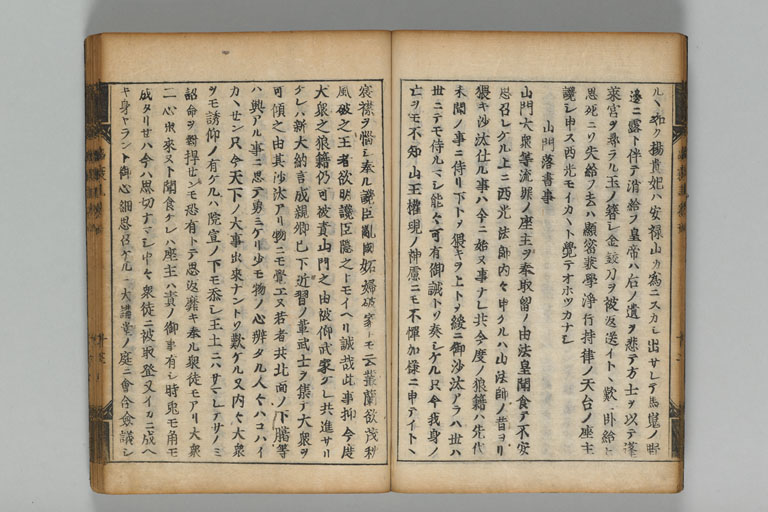 ルヽ如ク揚貴妃ハ安禄山カ為ニスカシ出サレテ馬嵬ノ野
邊ニ露ト伴テ消給フ皇帝ハ右ノ遺ヲ悲テ方士ヲ以テ蓬
莱宮ヲ尋ラル玉ノ簪シ金釵刀ヲ被返送イトヽ歎ノ卧給
思死ニソ失給フ去ハ顕密兼學浄行持律ノ天台ノ座主
讒シ申ス西光モイカヽト覺テオホツカナシ
山門落書事
山門大衆等流罪ノ座主ヲ奉取留ノ由法皇聞食テ不安
思召レケル上ニ西光法師内々申ケルハ山法師ノ昔ヨリ
猥キ沙汰仕ル事ハ今ニ始ヌ事ナレ共今度ノ狼藉ハ先代
未聞ノ事ニ侍リ下トヲ猥キヲ上トヲ緩ニ御沙汰アラハ世ハ
世ニテモ侍ルマシ能々可有御誡トソ奏シケル只今我身ノ
亡ヲモ不知山王權現ノ神慮ニモ不憚加様ニ申テイトヽ
宸襟ヲ悩シ奉ル讒臣乱國妬婦破家トモ云叢蘭欲茂秋
風破之王者欲明讒臣隠之トモイヘリ誠哉此事抑今度
大衆之狼藉仍可被責山門之由被仰武家ケレ共進サリ
ケレハ新大納言成親卿已下近習ノ輩武士ヲ集テ大衆ヲ
可傾之由其沙汰アリ物ニモ覺エヌ若者共北面ノ下臈等
ハ興アル事ニ思テ勇ミケリ少モ物ノ心辨タル人々ハコハイ
カヽセン只今天下ノ大事出來ナントソ歎ケル又内々大衆
ヲモ誘仰ノ有ケルハ院宣ノ下モ忝シ王土ニハサマレテサノミ
詔命ヲ對捍センモ恐有トテ思返靡キ奉ル衆徒モアリ大衆
二心出來ヌト聞食ケレハ座主ハ責ノ御事有シ時兎モ角モ
成タリセハ今ハ思切ナマシ中々衆徒ニ被取登又イカニ成ヘ
キ身ヤラント御心細思召ケル 大講堂ノ庭ニ會合僉議シ